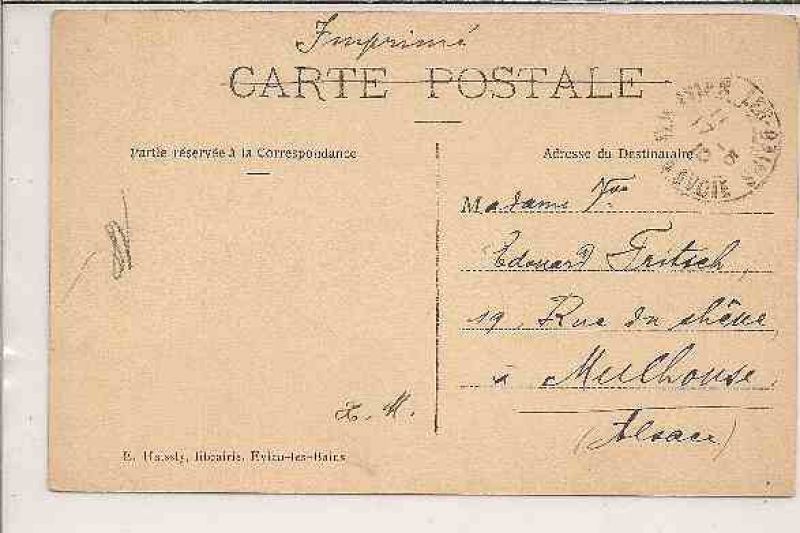 Imprimé
CARTE POSTALE
Partie réservée à la Correspondance
Adresse du Destinataire
EVIAN-LES-BAINS
SAVOIE
Madame Vve
Edouard Fritsch,
19, Rue du chêne,
à Mulhouse,
(Alsace)
E. Hassly, librairie, Evian-les-Bains